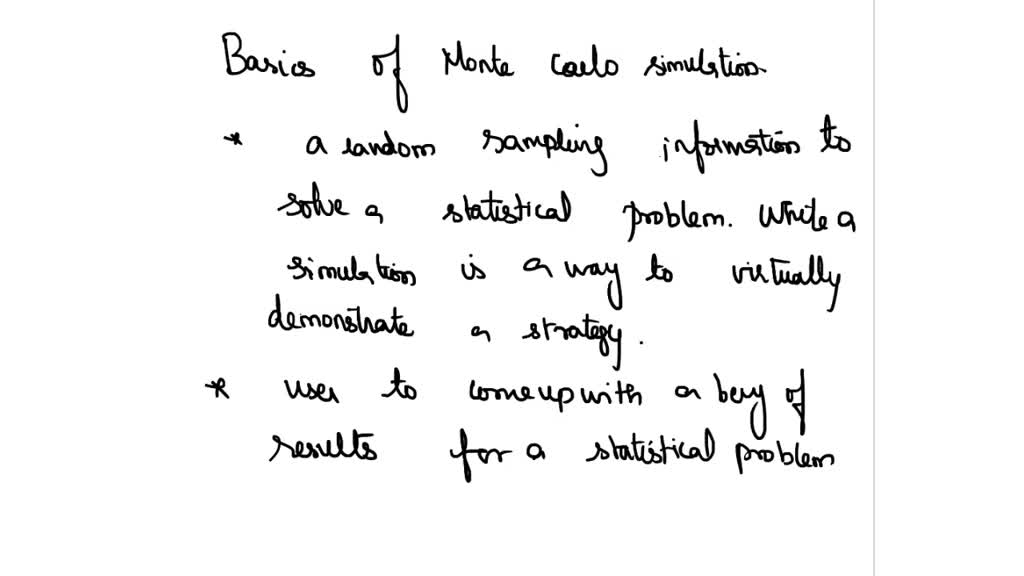 Basics of Monte Carlo simulation.
* a random sampling information to
solve a statistical problem. While a
simulation is a way to virtually
demonstrate a strategy.
* user to come up with a bevy of
results for a statistical problem